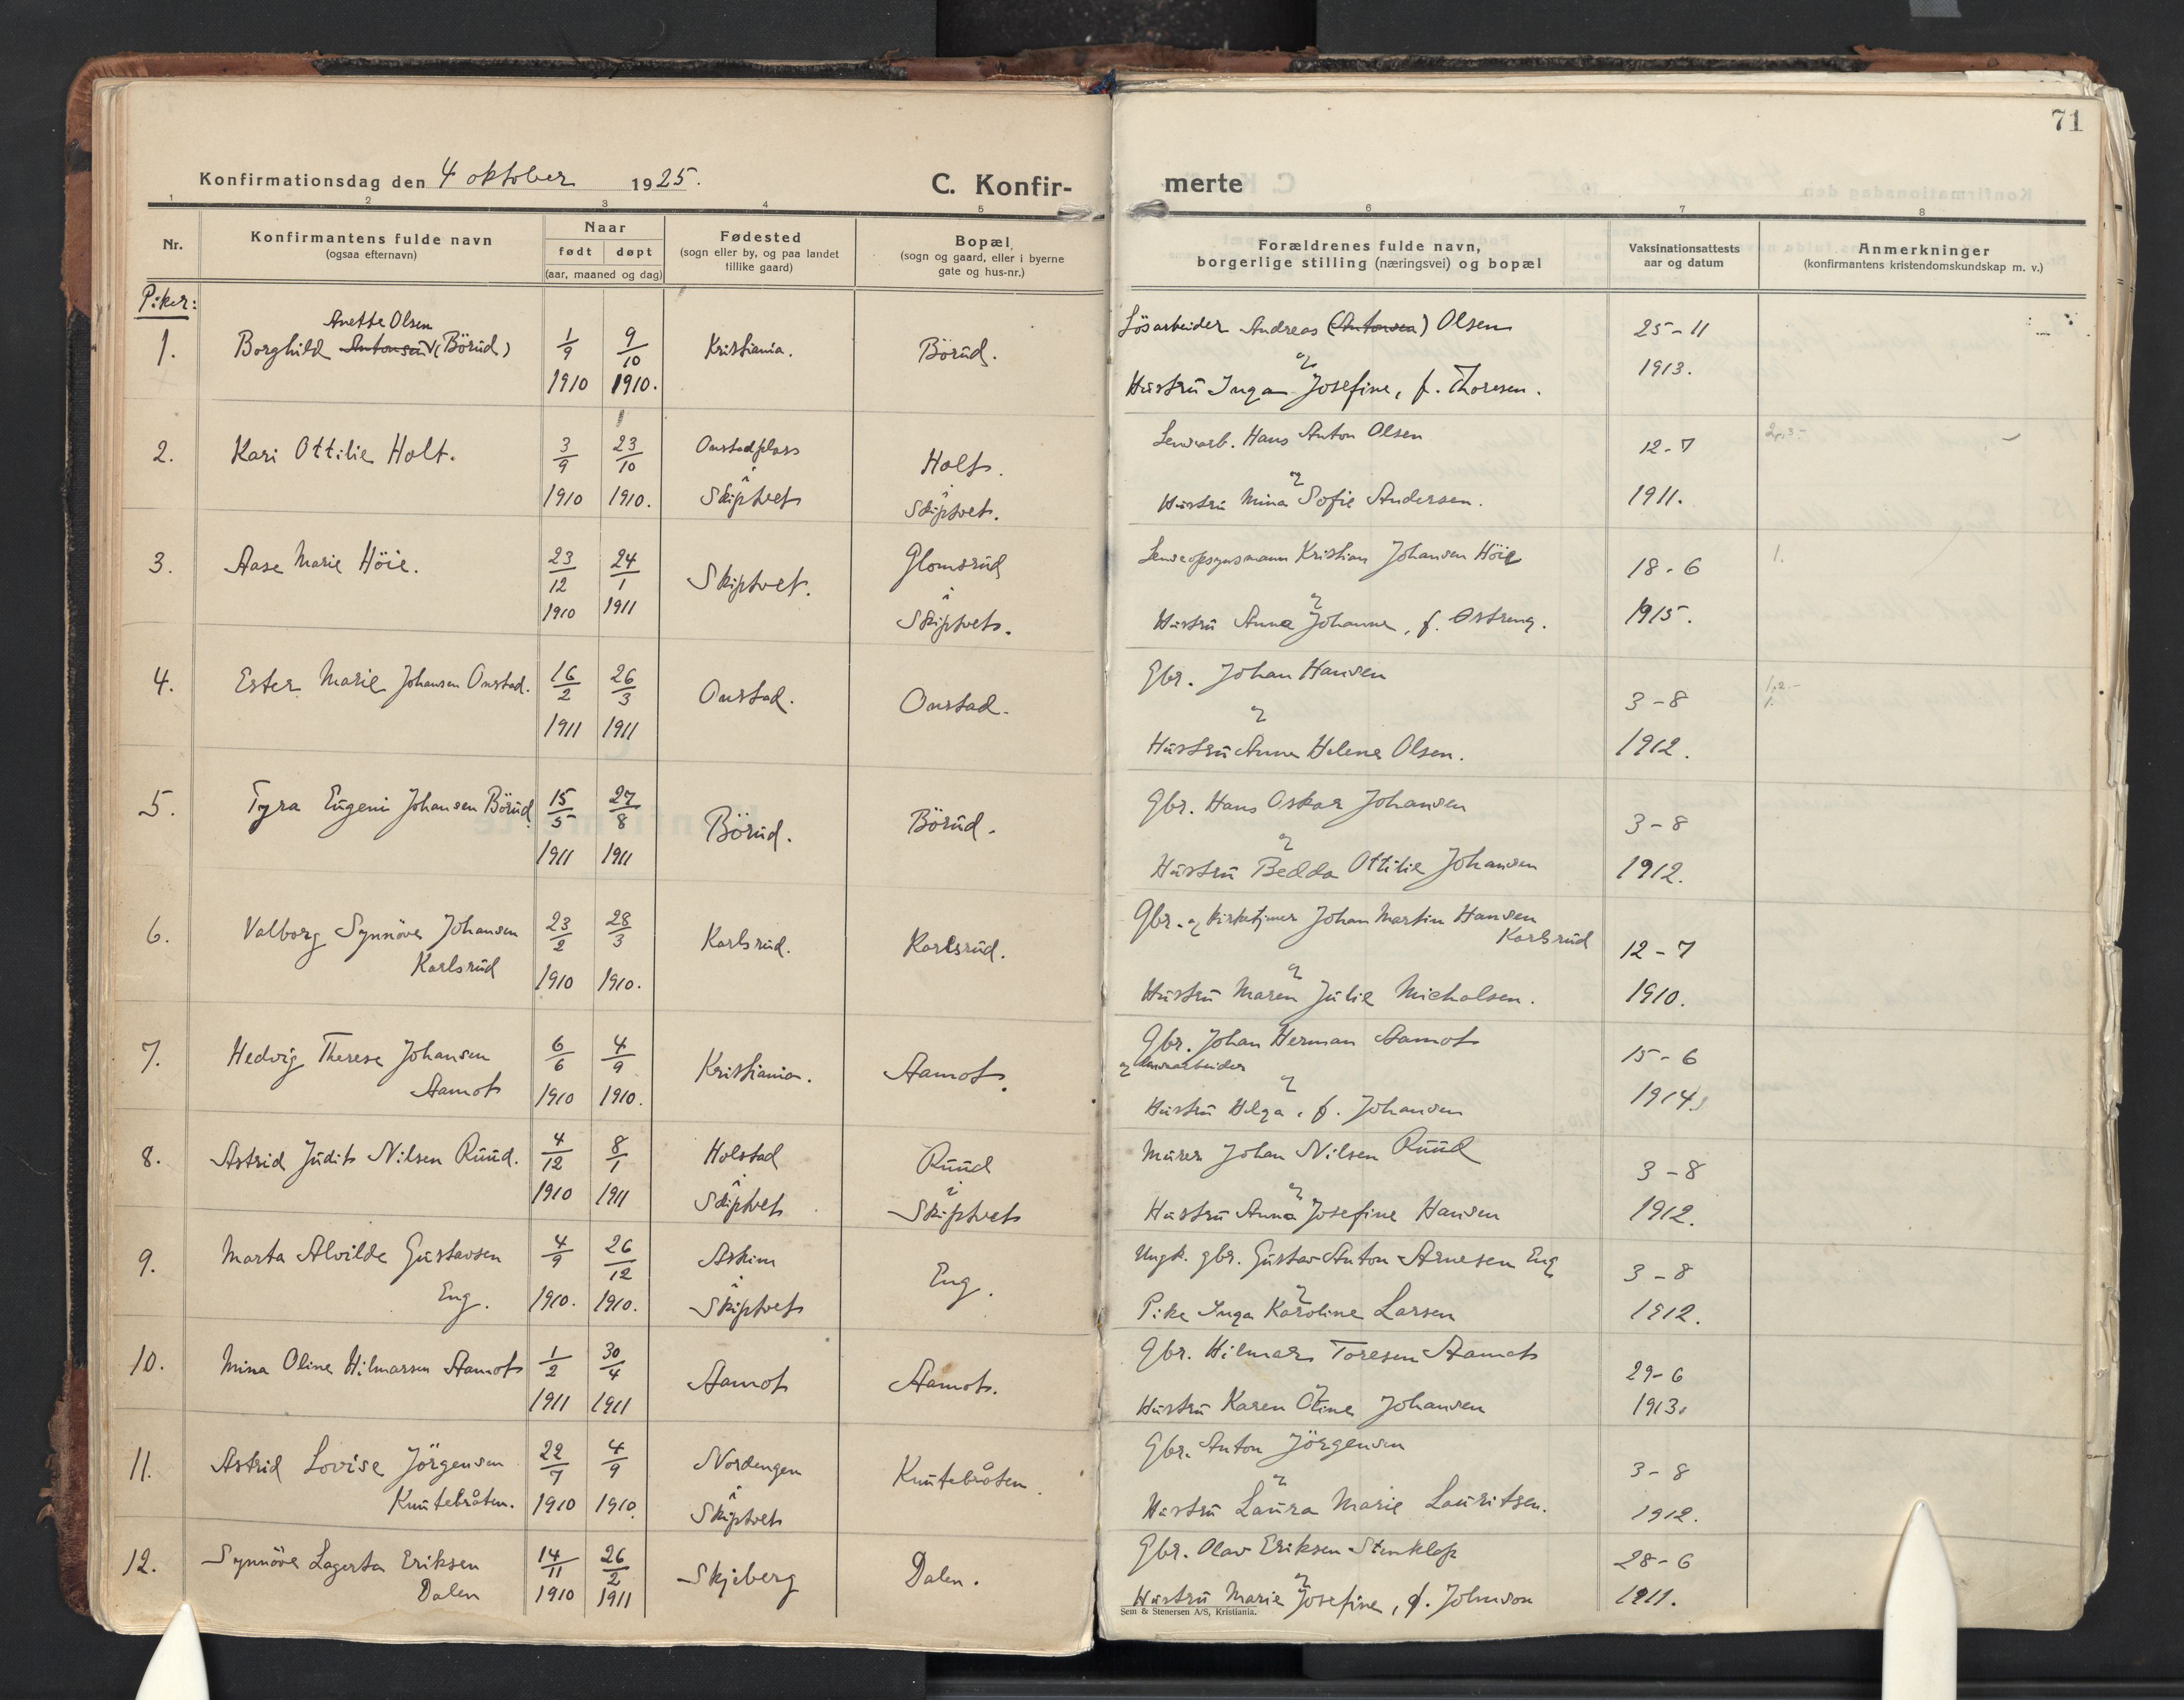 71
Konfirmationsdag den 4 oktober 1925.
C. Konfir-
merte
1 2 3 4 5 6 7 8
Nr.
Konfirmantens fulde navn
(ogsaa efternavn)
Naar
født døpt
(aar, maaned og dag)
Fødested
(sogn eller by, og paa landet
tillike gaard)
Bopæl
(sogn og gaard, eller i byerne
gate og hus-nr.)
Forældrenes fulde navn,
borgerlige stilling (næringsvei) og bopæl
Vaksinationsattests
aar og datum
Anmerkninger
(konfirmantens kristendomskundskap m. v.)
Piker:
Anette Olsen
1. Borghild Antonsen (Börud) 1/9 1910 9/10 1910. Kristiania. Börud.
Lösarbeider Andreas (Antonsen) Olsen
og
Hustru Inga Josefine, f. Thoresen.
25-11
1913.
2. Kari Ottilie Holt. 3/9 1910 23/10 1910.
Onstadplass
i
Skiptvet
Holt.
i
Skiptvet.
Lensearb. Hans Anton Olsen
og
Hustru Mina Sofie Andersen.
12-7
1911.
2,3-
3. Aase Marie Höie. 23/12 1910 24/1 1911 Skiptvet.
Glomsrud
i
Skiptvet.
Lenseopsynsmann Kristian Johansen Höie
og
Hustru Anna Johanne, f. Østreng.
18-6
1915.
1.
4. Ester Marie Johansen Onstad. 16/2 1911 26/3 1911 Onstad. Onstad.
Gbr. Johan Hansen
og
Hustru Anne Helene Olsen.
3-8
1912.
1,2-
1.
5. Tyra Eugeni Johansen Börud. 15/5 1911 27/8 1911 Börud. Börud.
Gbr. Hans Oskar Johansen
og
Hustru Bedda Ottilie Johansen
3-8
1912.
6. Valborg Synnöve Johansen
Karlsrud
23/2 1910 28/3 1910. Karlsrud. Karlsrud.
Gbr. og kirketjener Johan Martin Hansen
Karlsrud
og
Hustru Maren Julie Micholsen.
12-7
1910.
7. Hedvig Therese Johansen
Aamot
6/6 1910 4/9 1910. Kristiania. Aamot.
Gbr. Johan Herman Aamot
og lensearbeider
og
Hustru Helga, f. Johansen
15-6
1914.
8. Astrid Judit Nilsen Ruud. 4/12 1910 8/1 1911
Holstad
i
Skiptvet
Ruud
i
Skiptvet
Murer Johan Nilsen Ruud
og
Hustru Anna Josefine Hansen
3-8
1912.
9. Marta Alvilde Gustavsen
Eng.
4/9 1910. 26/12 1910.
Askim
i
Skiptvet
Eng.
Ungk. gbr. Gustav Anton Arnesen Eng
og
Pike Inga Karoline Larsen
3-8
1912.
10. Mina Oline Hilmarsen Aamot 1/2 1911 30/4 1911 Aamot Aamot.
Gbr. Hilmar Toresen Aamot
og
Hustru Karen Oline Johansen
29-6
1913.
11. Astrid Lovise Jörgensen
Knutebråten.
22/7 1910 4/9 1910.
Nordengen
i
Skiptvet
Knutebråten.
Gbr. Anton Jörgensen
og
Hustru Laura Marie Lauritsen.
3-8
1912.
12. Synnöve Lagerta Eriksen
Dalen
14/11 1910 26/2 1911 Skjeberg Dalen.
Gbr. Olav Eriksen Stenklep
og
Hustru Marie Josefine, f. Johnson
28-6
1911.
Sem & Stenersen A/S, Kristiania.